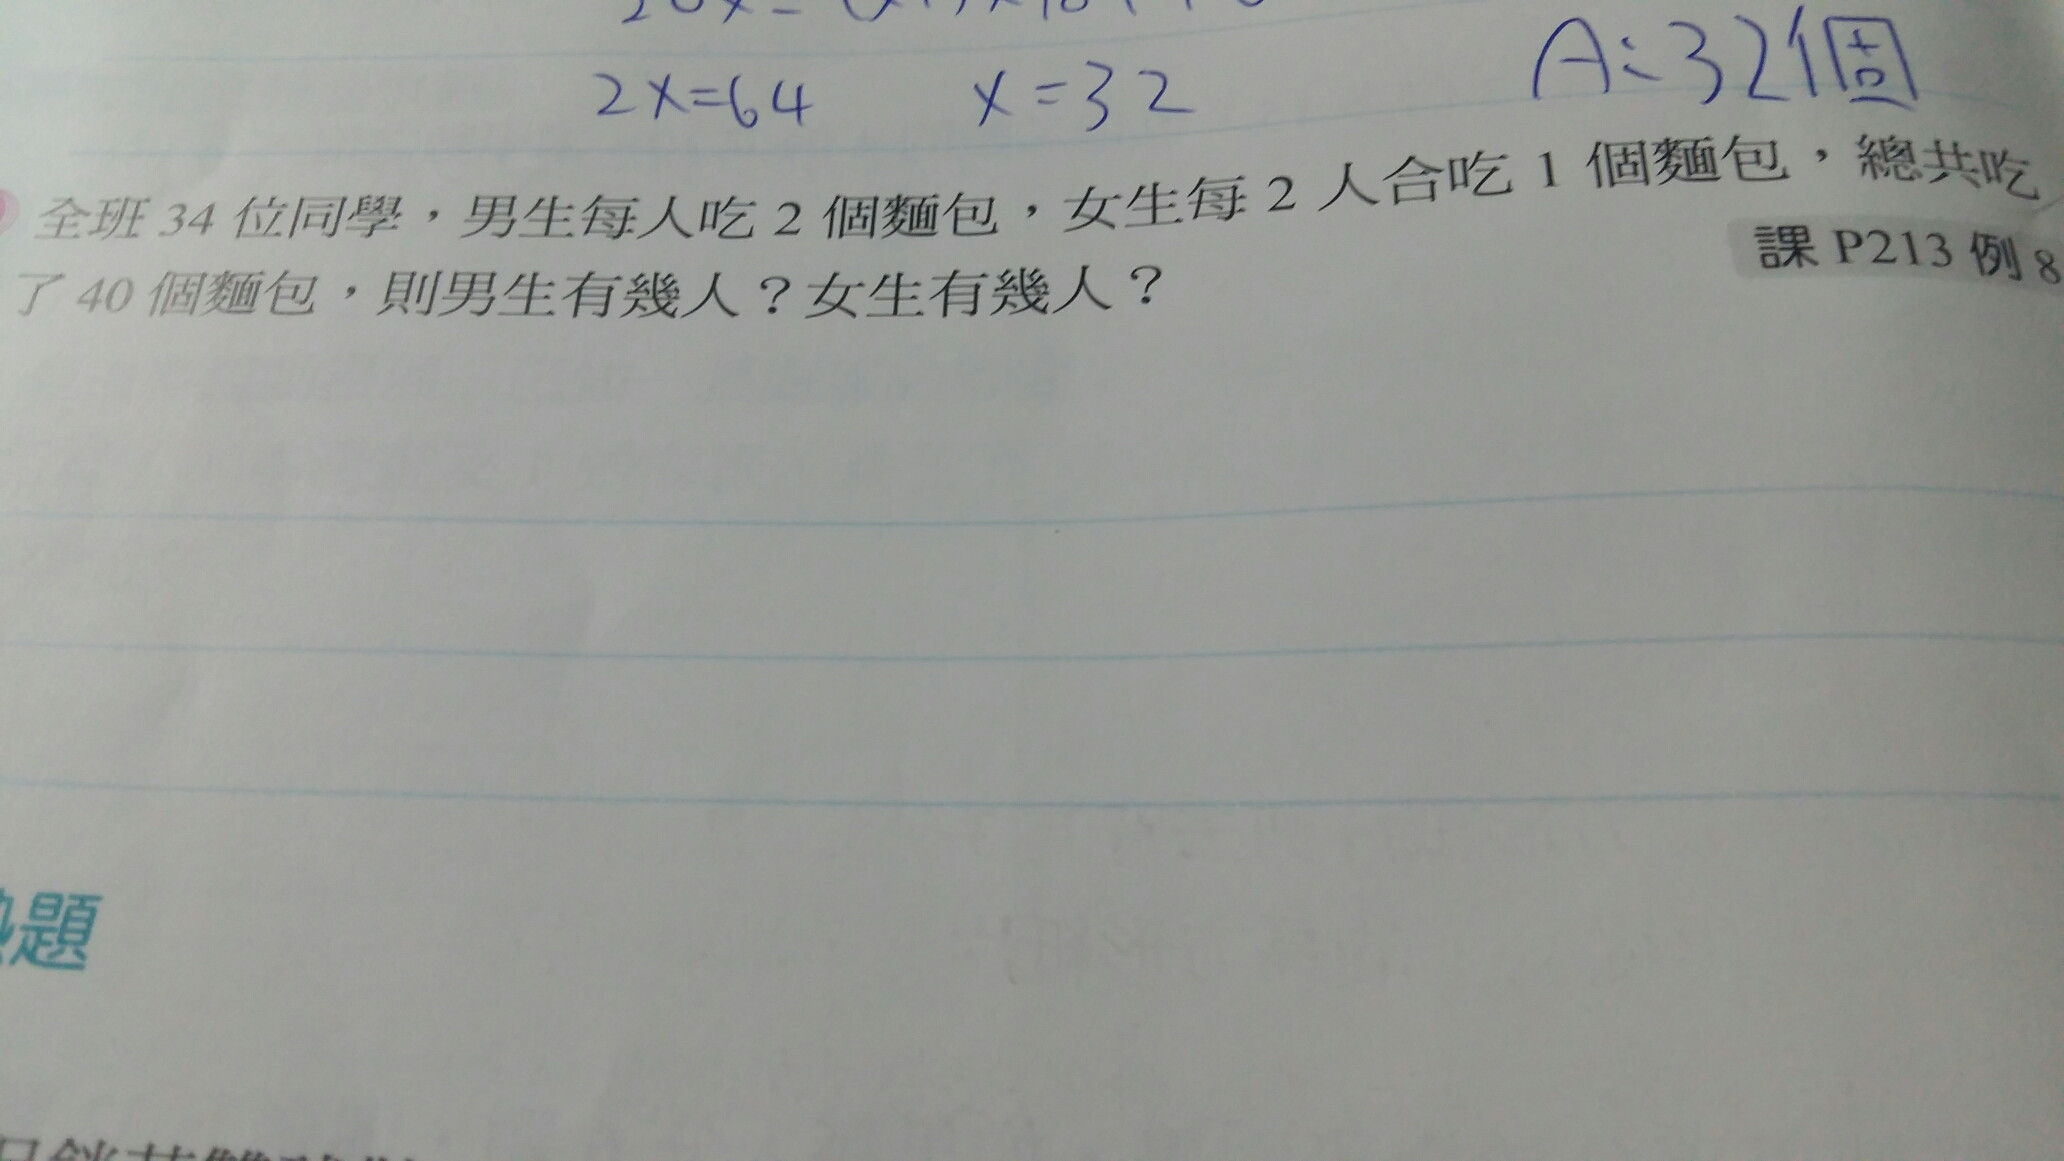 2x=64 x=32 A:32個
全班 34 位同學，男生每人吃 2 個麵包，女生每 2 人合吃 1 個麵包，總共吃
了 40 個麵包，則男生有幾人？女生有幾人？
課 P213 例 8
題